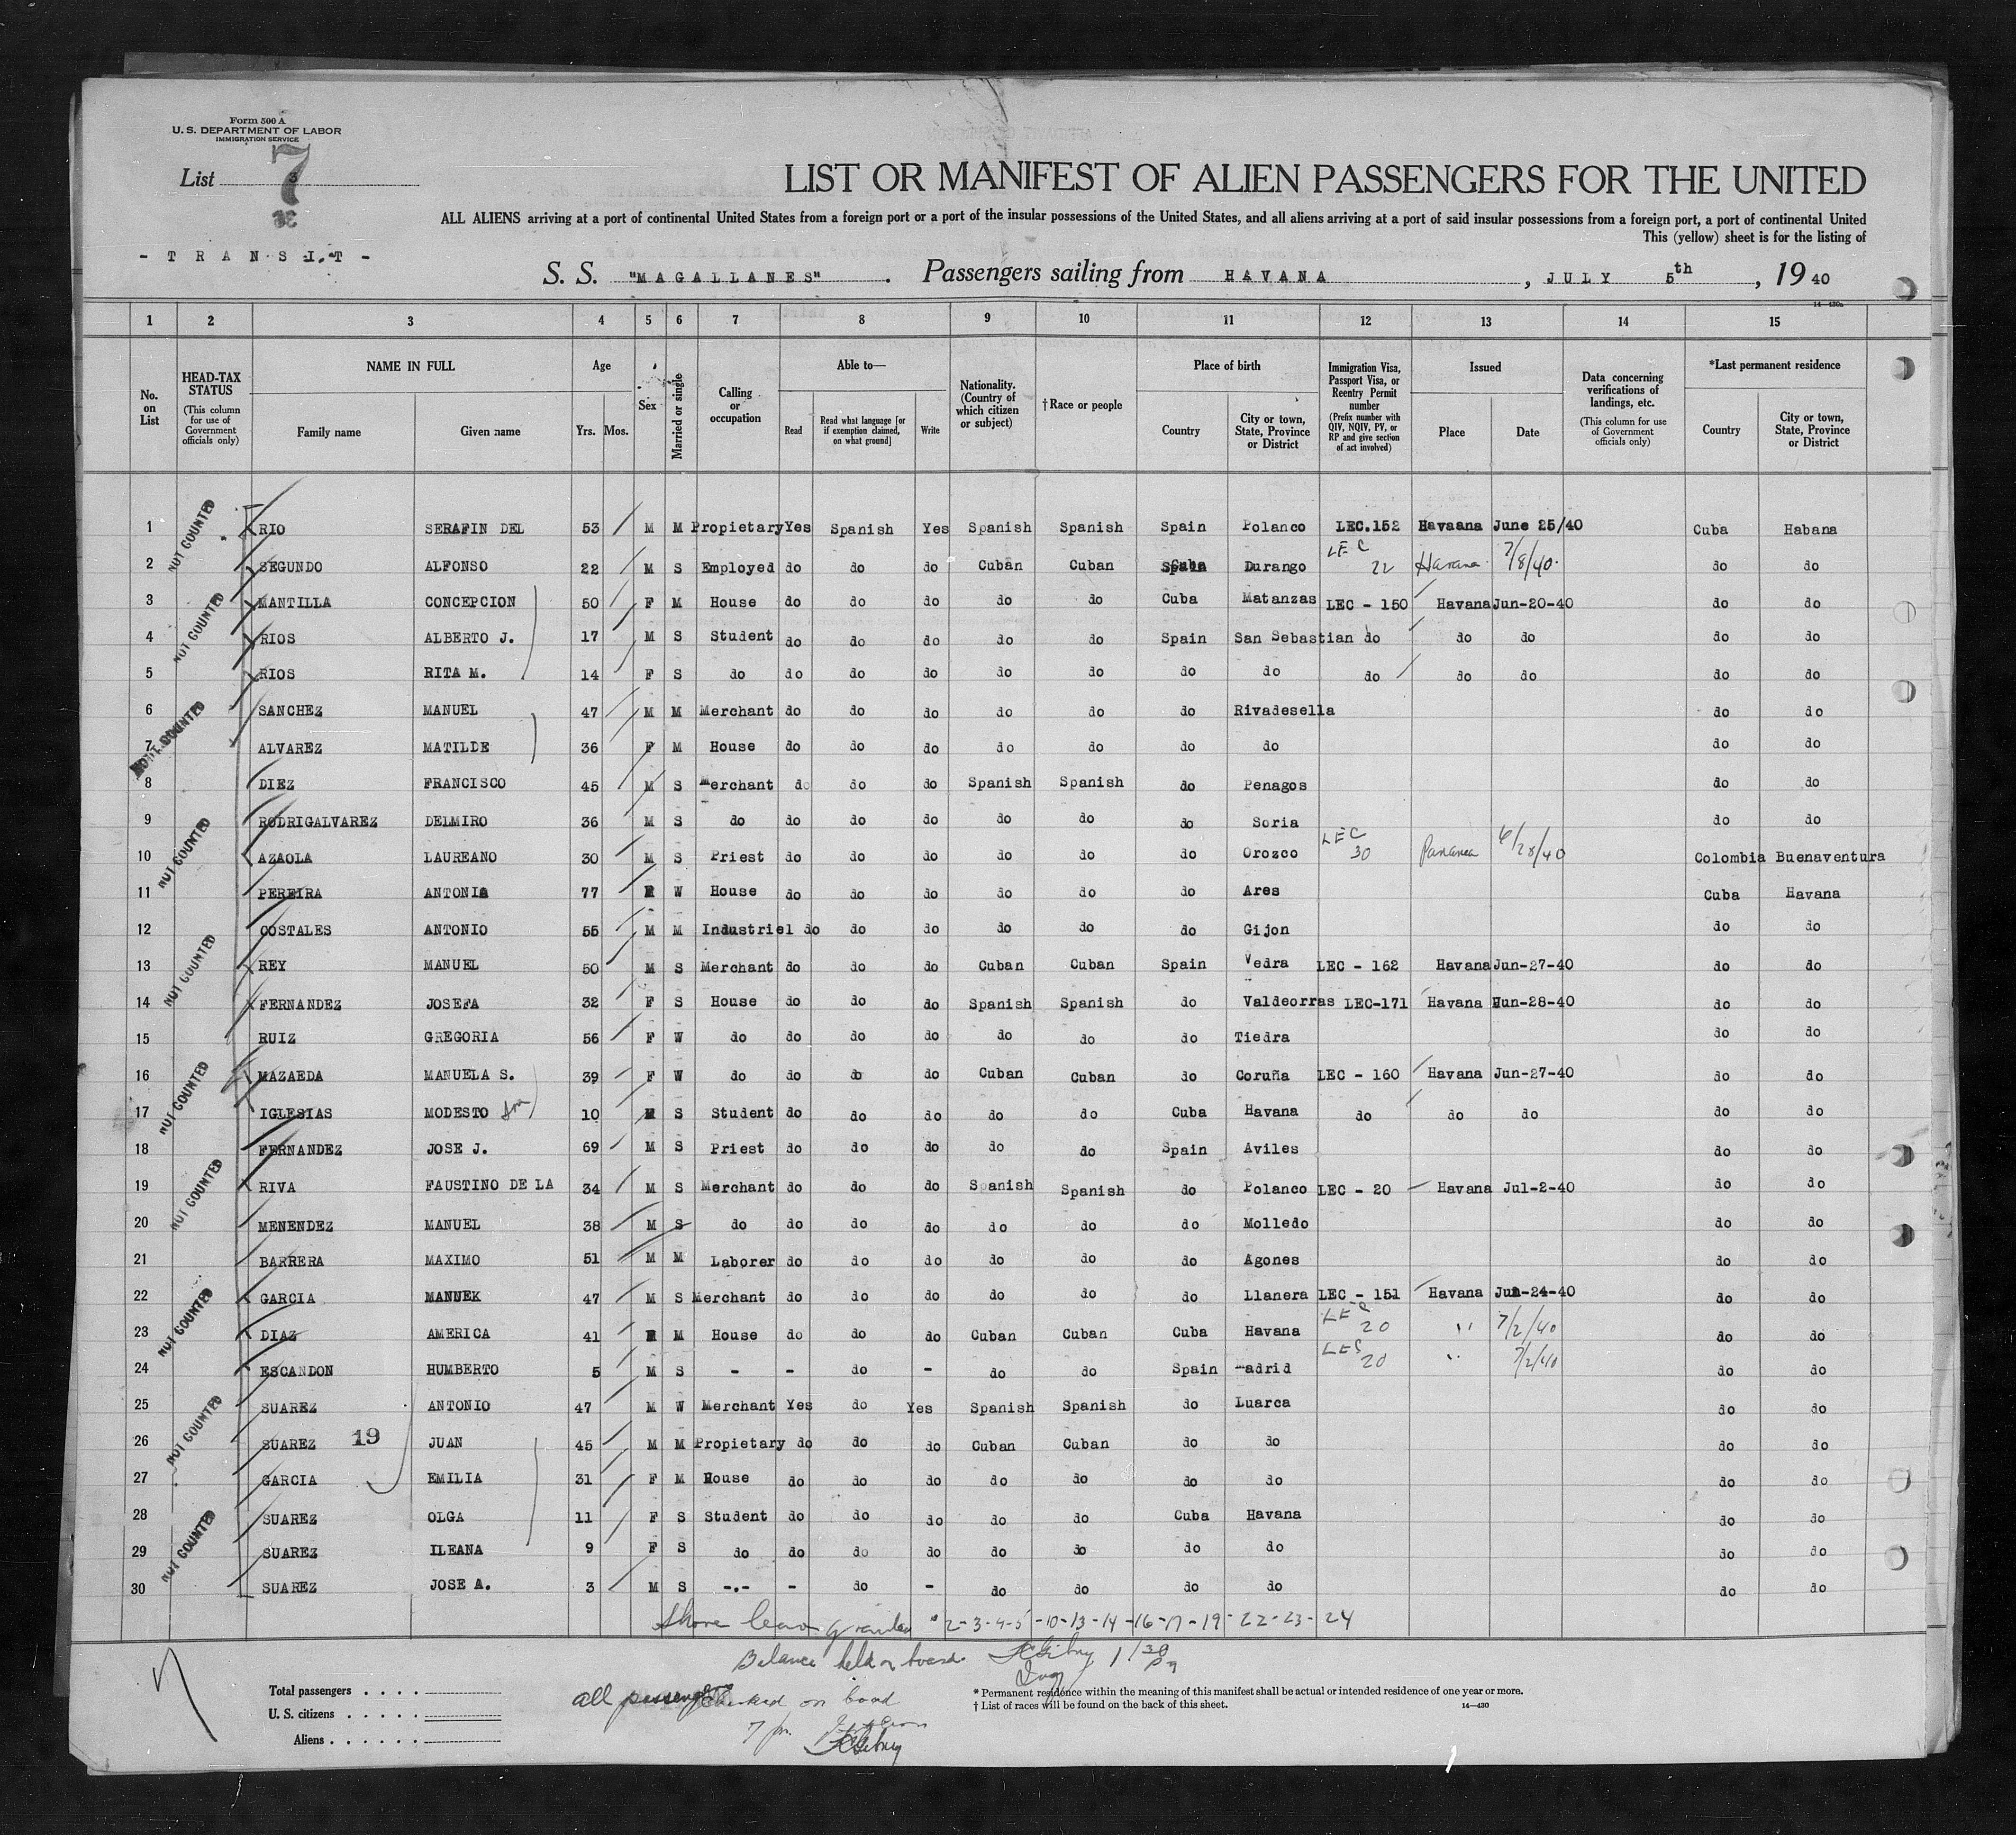 Form 500 A
U. S. DEPARTMENT OF LABOR
IMMIGRATION SERVICE
List 3
7
LIST OR MANIFEST OF ALIEN PASSENGERS FOR THE UNITED
ALL ALIENS arriving at a port of continental United States from a foreign port or a port of the insular possessions of the United States, and all aliens arriving at a port of said insular possessions from a foreign port, a port of continental United
This (yellow) sheet is for the listing of
- T R A N S I T -
S. S. "MAGALLANES". Passengers sailing from HAVANA, JULY 5th, 19 40
14—430a
1 2 3 4 5 6 7 8 9 10 11 12 13 14 15
No. on List
HEAD-TAX STATUS (This column for use of Government officials only)
NAME IN FULL Family name Given name
Age Yrs. Mos.
Sex
Married or single
Calling or occupation
Able to— Read Read what language [or if exemption claimed, on what ground] Write
Nationality. (Country of which citizen or subject)
†Race or people
Place of birth Country City or town, State, Province or District
Immigration Visa, Passport Visa, or Reentry Permit number (Prefix number with QIV, NQIV, PV, or RP and give section of act involved)
Issued Place Date
Data concerning verifications of landings, etc. (This column for use of Government officials only)
*Last permanent residence Country City or town, State, Province or District
1 RIO SERAFIN DEL 53 M M Propietary Yes Spanish Yes Spanish Spanish Spain Polanco LEC.152 Havaana June 25/40 Cuba Habana
2 SEGUNDO ALFONSO 22 M S Employed do do do Cuban Cuban Cuba Durango LEC 22 Havana 7/8/40 do do
3 MANTILLA CONCEPCION 50 F M House do do do do do Cuba Matanzas LEC - 150 Havana Jun-20-40 do do
4 RIOS ALBERTO J. 17 M S Student do do do do do Spain San Sebastian do do do do do
5 RIOS RITA M. 14 F S do do do do do do do do do do do do do
6 SANCHEZ MANUEL 47 M M Merchant do do do do do do Rivadesella do do
7 ALVAREZ MATILDE 36 F M House do do do do do do do do do
8 DIEZ FRANCISCO 45 M S Merchant do do do Spanish Spanish do Penagos do do
9 RODRIGALVAREZ DELMIRO 36 M S do do do do do do do Soria do do
10 AZAOLA LAUREANO 30 M S Priest do do do do do do Orozco LEC 30 Panama 6/28/40 Colombia Buenaventura
11 PEREIRA ANTONIA 77 F W House do do do do do do Ares Cuba Havana
12 COSTALES ANTONIO 55 M M Industriel do do do do do do Gijon do do
13 REY MANUEL 50 M S Merchant do do do Cuban Cuban Spain Vedra LEC - 162 Havana Jun-27-40 do do
14 FERNANDEZ JOSEFA 32 F S House do do do Spanish Spanish do Valdeorras LEC-171 Havana Jun-28-40 do do
15 RUIZ GREGORIA 56 F W do do do do do do do Tiedra do do
16 MAZAEDA MANUELA S. 39 F W do do do do Cuban Cuban do Coruña LEC - 160 Havana Jun-27-40 do do
17 IGLESIAS MODESTO son 10 M S Student do do do do do Cuba Havana do do do do do
18 FERNANDEZ JOSE J. 69 M S Priest do do do do do Spain Aviles do do
19 RIVA FAUSTINO DE LA 34 M S Merchant do do do Spanish Spanish do Polanco LEC - 20 Havana Jul-2-40 do do
20 MENENDEZ MANUEL 38 M S do do do do do do do Molledo do do
21 BARRERA MAXIMO 51 M M Laborer do do do do do do Agones do do
22 GARCIA MANUEK 47 M S Merchant do do do do do do Llanera LEC - 151 Havana Jun-24-40 do do
23 DIAZ AMERICA 41 F M House do do do Cuban Cuban Cuba Havana LEC 20 " 7/2/40 do do
24 ESCANDON HUMBERTO 5 M S - - do - do do Spain Madrid LEC 20 " 7/2/40 do do
25 SUAREZ ANTONIO 47 M W Merchant Yes do Yes Spanish Spanish do Luarca do do
26 SUAREZ 19 JUAN 45 M M Propietary do do do Cuban Cuban do do do do
27 GARCIA EMILIA 31 F M House do do do do do do do do do
28 SUAREZ OLGA 11 F S Student do do do do do Cuba Havana do do
29 SUAREZ ILEANA 9 F S do do do do do do do do do do
30 SUAREZ JOSE A. 3 M S -.- - do - do do do do do do
NOT COUNTED
NOT COUNTED
NOT COUNTED
NOT COUNTED
NOT COUNTED
NOT COUNTED
NOT COUNTED
NOT COUNTED
NOT COUNTED
NOT COUNTED
Shore leave granted #2-3-4-5-10-13-14-16-17-19-22-23-24
Balance held on board 1/30
all passengers checked on board
7 pm
Total passengers
U. S. citizens
Aliens
* Permanent residence within the meaning of this manifest shall be actual or intended residence of one year or more.
† List of races will be found on the back of this sheet.
14—430